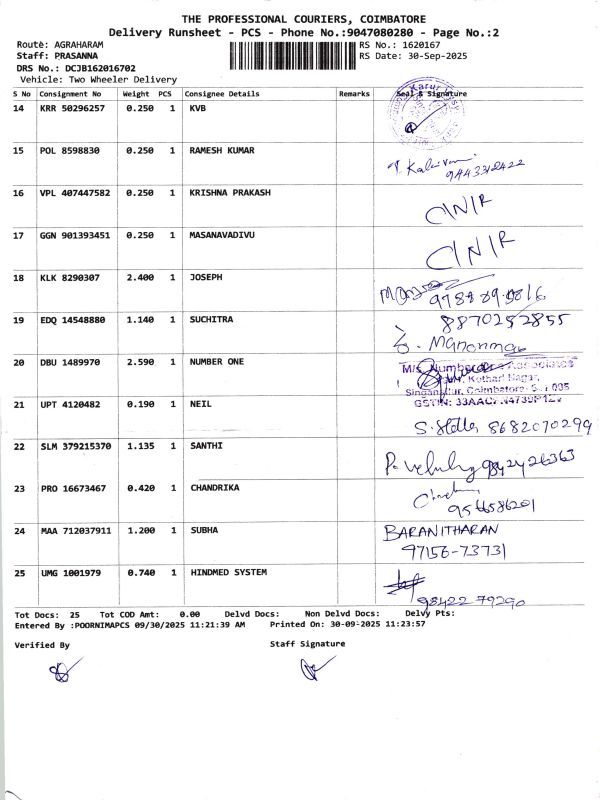 THE PROFESSIONAL COURIERS, COIMBATORE
Delivery Runsheet - PCS - Phone No.:9047080280 - Page No.:2
Route: AGRAHARAM RS No.: 1620167
Staff: PRASANNA RS Date: 30-Sep-2025
DRS No.: DCJB162016702
Vehicle: Two Wheeler Delivery
S No Consignment No Weight PCS Consignee Details Remarks Seal & Signature
14 KRR 50296257 0.250 1 KVB
15 POL 8598830 0.250 1 RAMESH KUMAR
9443312422
16 VPL 407447582 0.250 1 KRISHNA PRAKASH C/N/R
17 GGN 901393451 0.250 1 MASANAVADIVU C/N/R
18 KLK 8290307 2.400 1 JOSEPH
19 EDQ 14548880 1.140 1 SUCHITRA 8870252855
20 DBU 1489970 2.590 1 NUMBER ONE
Kothari Nagar,
21 UPT 4120482 0.190 1 NEIL
8682070299
22 SLM 379215370 1.135 1 SANTHI
23 PRO 16673467 0.420 1 CHANDRIKA
9566586201
24 MAA 712037911 1.200 1 SUBHA BARANITHARAN
97156-73731
25 UMG 1001979 0.740 1 HINDMED SYSTEM
98422 79290
Tot Docs: 25 Tot COD Amt: 0.00 Delvd Docs: Non Delvd Docs: Delvy Pts:
Entered By :POORNIMAPCS 09/30/2025 11:21:39 AM Printed On: 30-09-2025 11:23:57
Verified By Staff Signature